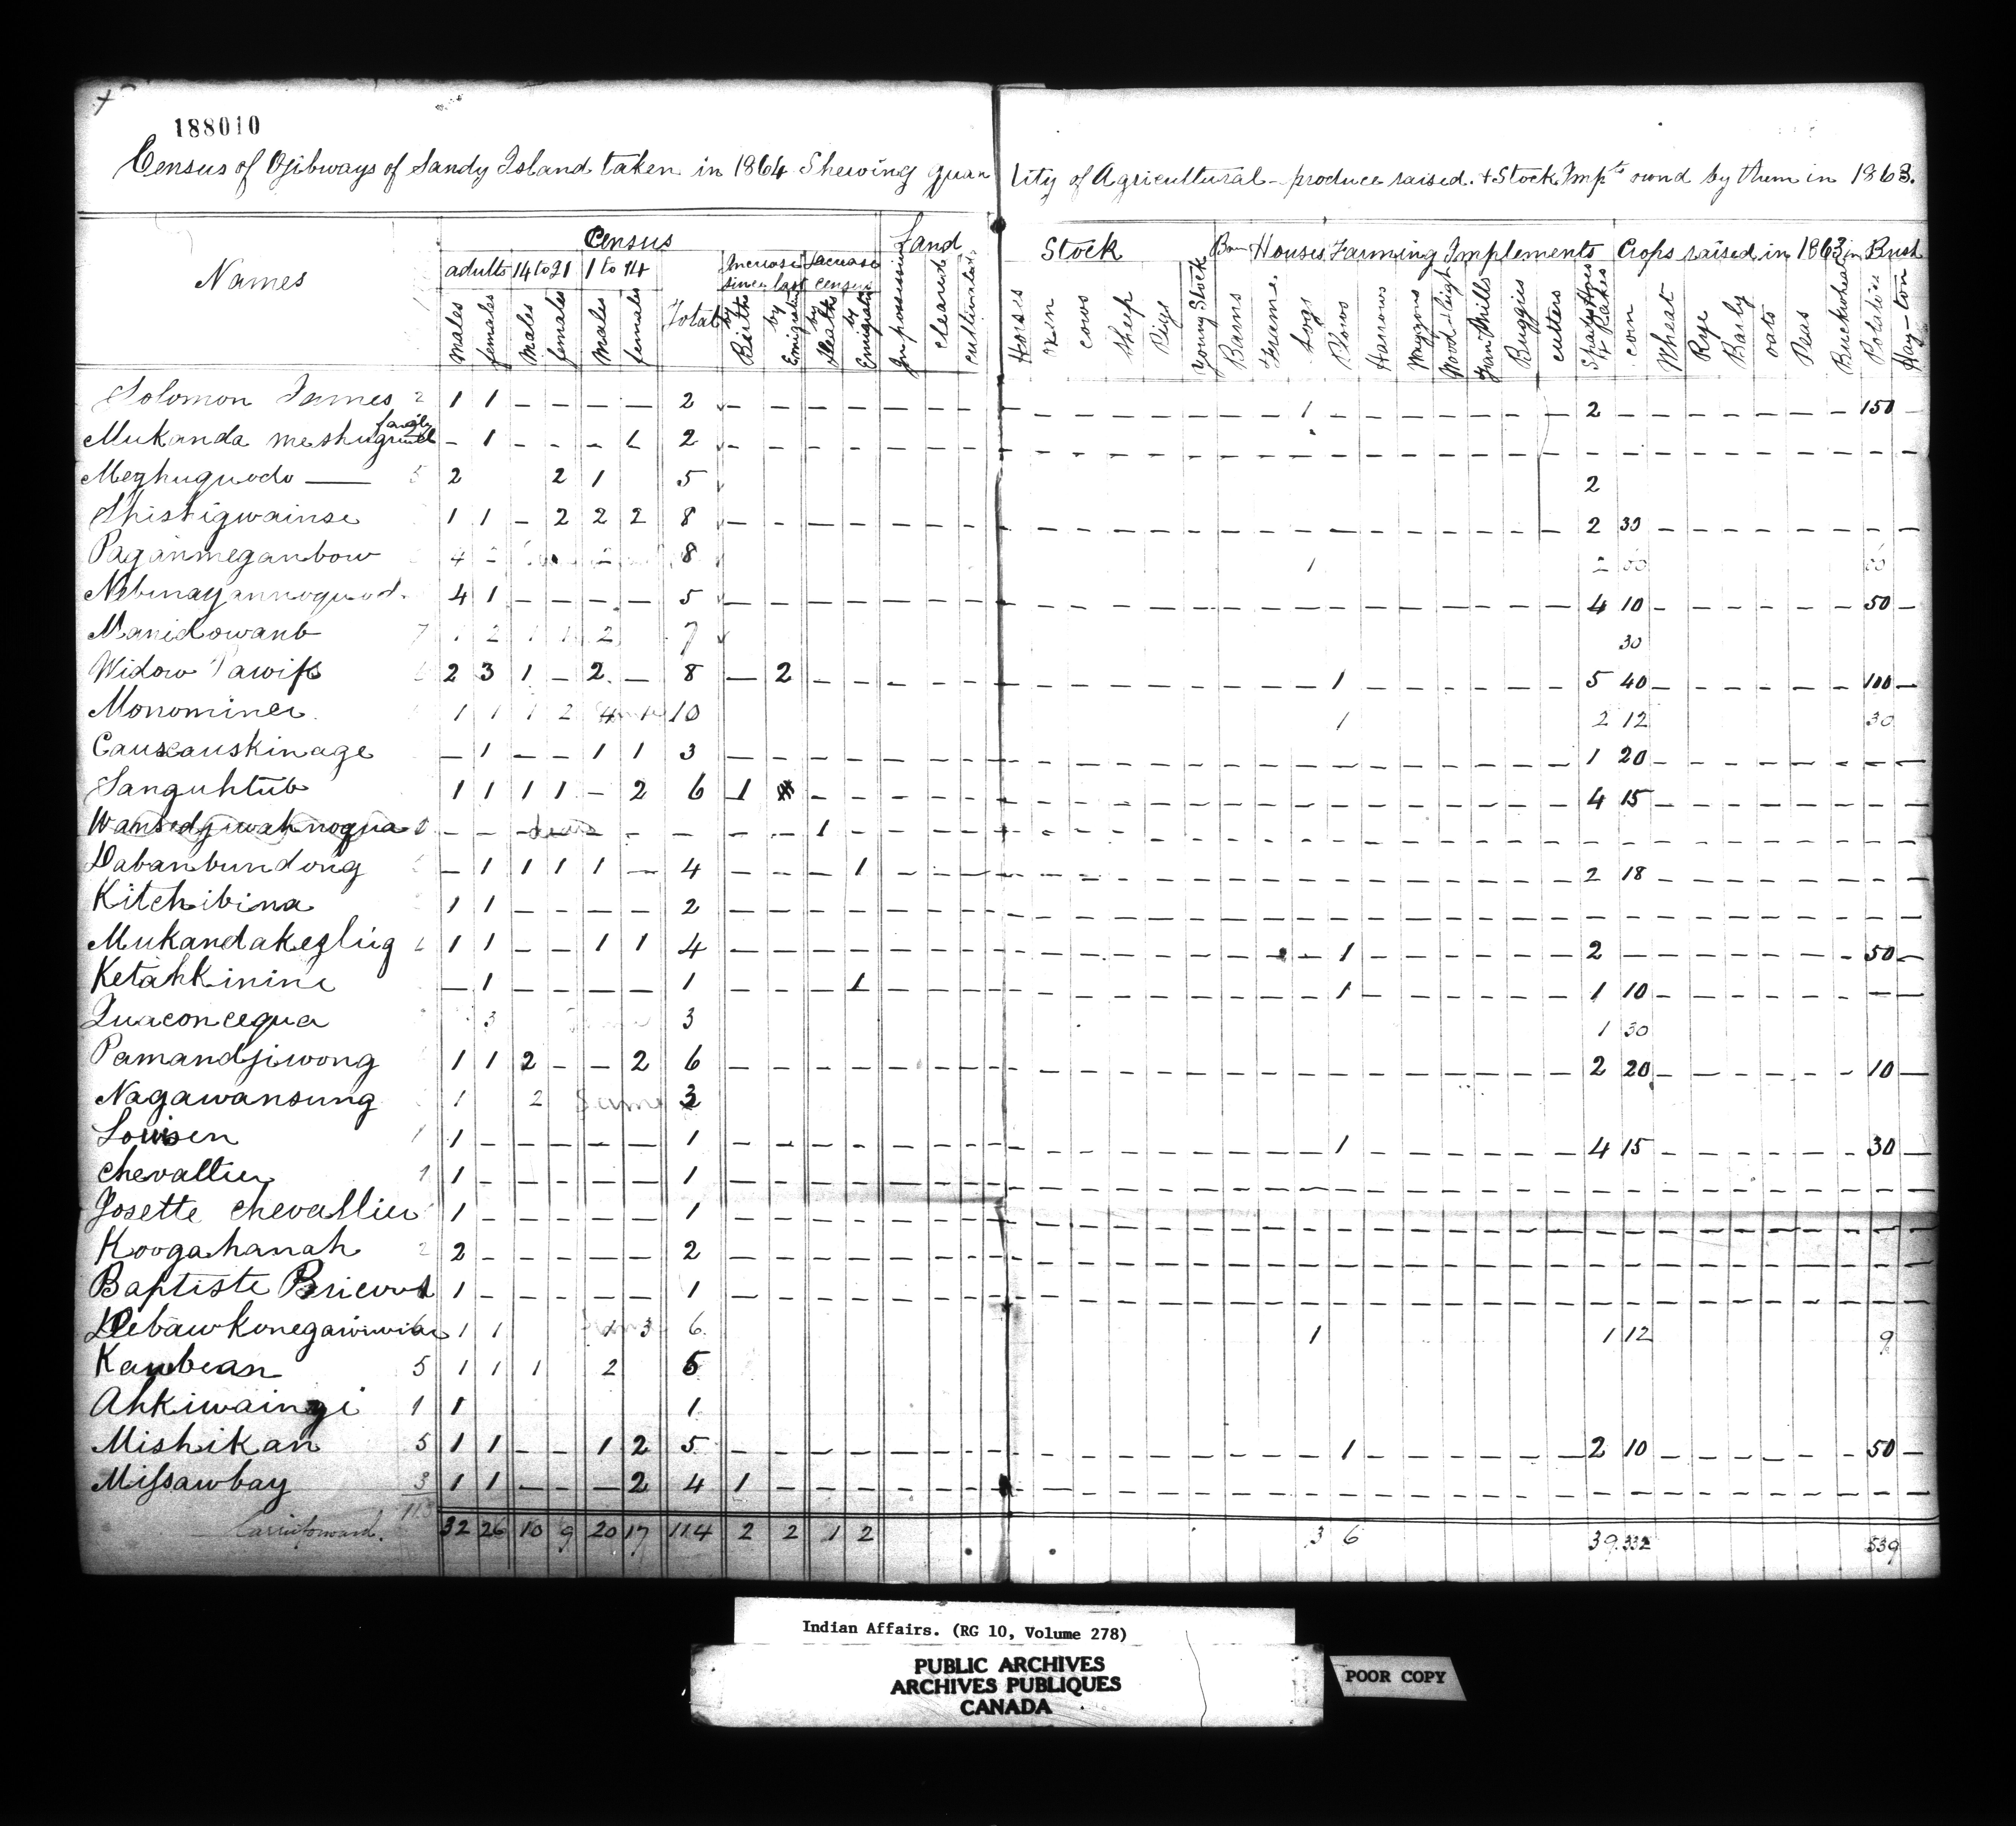 188010
Census of Ojibways of Sandy Island taken in 1864 Shewing quantity of Agricultural produce raised. + Stock Impts ownd by them in 1863.
Names
Census
Land
Stock
Houses
Farming Implements
Crops raised in 1863 in Bush
adults 14 to 21 1 to 14
Increase since last
Decrease census
Males females Males females Males females Total by Births by Emigratn by Deaths by Emigratn In possession cleared cultivated
Horses oxen cows sheep Pigs Young Stock Barns Frame Logs Plows Harrows Waggons Wood sleigh Fan Mills Buggies cutters Spades Hoes & Rakes corn Wheat Rye Barly oats Peas Buckwheat Potatoes Hay-ton
Solomon James 2 1 1 – – – – 2 – – – – – – – 1 2 – – – – – – – 150 –
Mukanda meshugwud family – 1 – – – 1 2 – – – – – – –
Mezhuquodo — 5 2 2 1 5 2
Shistigwainse 1 1 – 2 2 2 8 – – – – – – – 2 30 – – – – – – – –
Paganmeganbow 4 2 2 8 1 2 60 60
Nebinayannoquod. 4 1 – – – – 5 – – – – – – – 4 10 – 50 –
Manidowanb 7 1 2 1 1 2 7 30
Widow Pawiss 2 3 1 – 2 – 8 – 2 – – – – – 1 5 40 – 100 –
Monominee 1 1 1 2 4 1 10 1 2 12 30
Causcauskinage – 1 – – 1 1 3 – – – – – – – 1 20 – – – – – – – –
Sanguhtub 1 1 1 1 – 2 6 1 – – – – – 4 15 – – – – – – – –
Wansedjiwahnoqua – – – dead – – – – – 1 – – – –
Dabanbundong – 1 1 1 1 – 4 – – – 1 – – – 2 18 – – – – – – – –
Kitchibina 1 1 – – – – 2 – – – – – – –
Mukandakezhig 1 1 – – 1 1 4 – – – – – – – 1 2 – – – – – – – 50 –
Ketahkinine – 1 – – – – 1 – – – 1 – – – 1 1 10 – – – – – – – –
Quaconcequa 3 3 1 30
Pamandjiwong 1 1 2 – – 2 6 – – – – – – – 2 20 – – – – – – 10 –
Nagawansung 1 2 Same 3
Louisen 1 1 – – – – – 1 – – – – – – – 1 4 15 – – – – – – 30 –
Chevallier 1 1 – – – – – 1 – – – – – – –
Josette Chevallier 1 – – – – – 1 – – – – – – –
Koogahanah 2 2 – – – – – 2 – – – – – – –
Baptiste 1 – – – – – 1 – – – – – – –
6 1 1 1 3 6 1 1 12 9
Kawbean 5 1 1 1 2 5
Ahkiwainzi 1 1 1
Mishikan 5 1 1 – – 1 2 5 – – – – – – – 1 2 10 – – – – – – 50 –
Missawbay 3 1 1 – – – 2 4 1 – – – – – –
Carriedforward. 113 32 26 10 9 20 17 114 2 2 1 2 3 6 39 332 539
Indian Affairs. (RG 10, Volume 278)
PUBLIC ARCHIVES
ARCHIVES PUBLIQUES
CANADA
POOR COPY